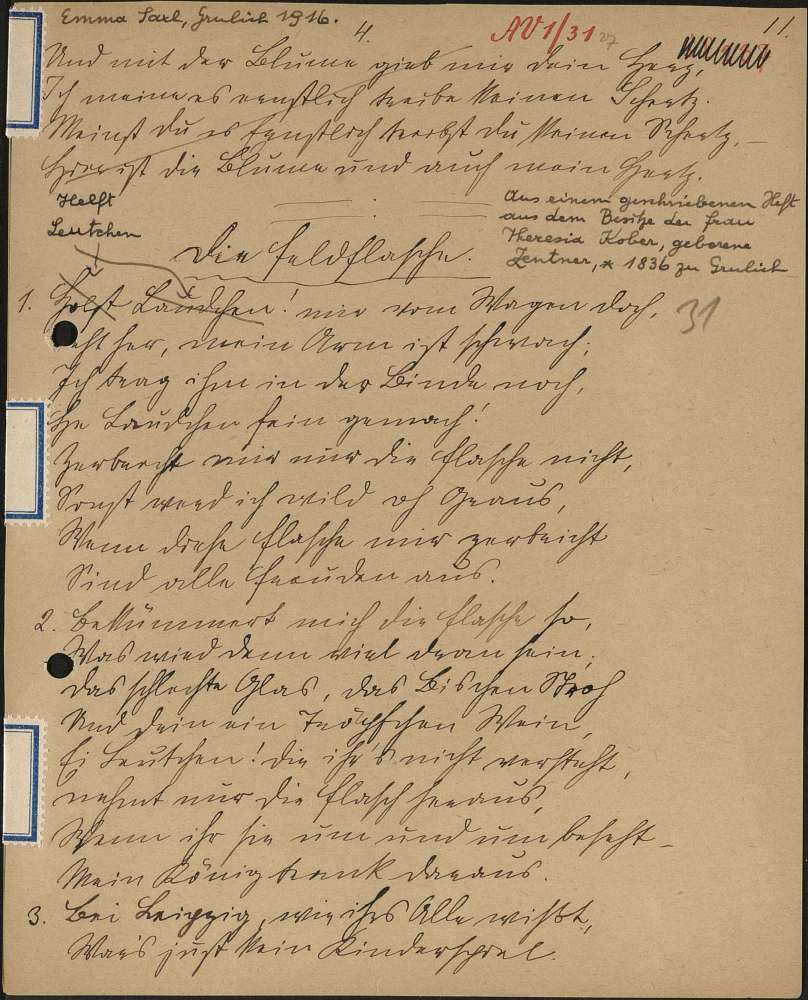 Emma Saxl, Grulich 1916.
4.
AV1/31
27
11.
Und mit der Blume gieb mir dein Herz,
Ich meine es ernstlich treibe keinen Schertz.
Meinst du es ernstlich treibst du keinen Schertz, –
Hier ist die Blume und auch mein Hertz.
Helft
Leutchen
Aus einem geschriebenen Heft
aus dem Besitze der Frau
Theresia Kober, geborene
Zentner, * 1836 zu Grulich
Die Feldflasche.
31
1. Holft Laudchen! mir vom Wagen doch,
Seht her, mein Arm ist schwach;
Ich trag ihn in der Binde noch,
He Laudchen fein gemach!
Zerbrecht mir nur die Flasche nicht,
Sonst werd ich wild oh Graus,
Wenn diese Flasche mir zerbricht
Sind alle Freuden aus.
2. Bekümmert mich die Flasche so,
Was wird denn viel dran sein;
Das schlechte Glas, das Bischen Stroh
Und drin ein Tröpfchen Wein,
Ei Leutchen! die ihr's nicht versteht,
nehmt nur die Flasch heraus,
Wenn ihr sie um und um beseht –
Mein König trank daraus.
3. Bei Leipzig, wie ihrs Alle wißt,
War's just kein Kinderspiel.